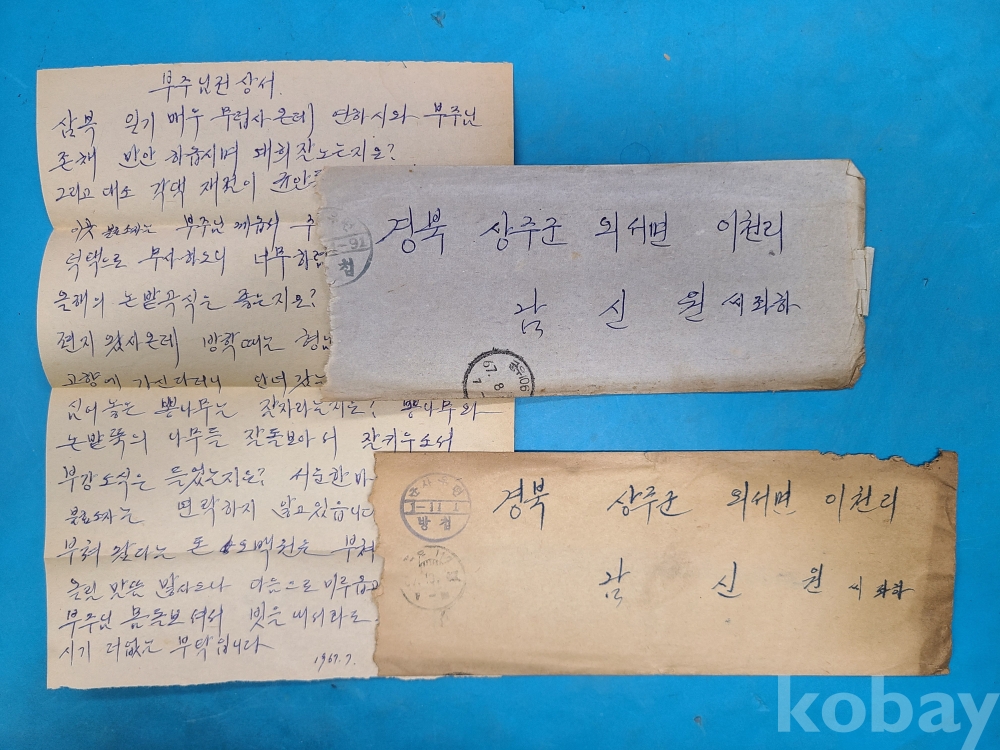 부주님전 상서
삼복 일기 매우 무럽사온데 연하시와 부주님
존체 만안 하옵시며 잘노는지요?
그리고 대소 각댁 재절이 균안
이곳 불효소자는 부주님 께옵서 주
덕택으로 무사하오니 너무하렴
올해의 논밭곡식은 좋은지요?
편지 왔사온데 방학때는 형님
고향에 가신다더니
심어놓은 뽕나무는 잘자라는지요? 뽕나무와
논밭뚝의 나무들 잘돌보아서 잘키우소서
부강소식은 들었는지요?
불효소자는 연락하지 않고있읍니다
부쳐 왔다는 돈 오백원을 부쳐
올릴 맛뜸 많사오나 다음으로 미루옵고
부주님 몸돌보셔서 빗을내서라도
시기 더없는 부탁입니다
1967.7.
경북 상주군 외서면 이천리
남 신 원 씨 좌하
1-91
첩
67.8
경북 상주군 외서면 이천리
남 신 원 씨 좌하
1-11
방첩
kobay